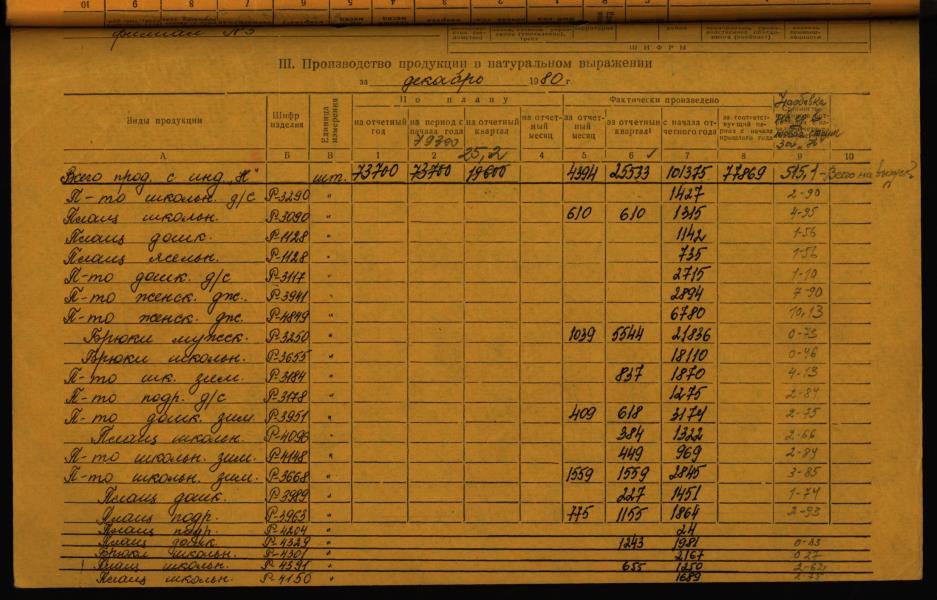 10 9 8 7 6 5 4 3
филиал N3
ШИФРЫ
III. Производство продукции в натуральном выражении
за декабрь 1980 г.
Виды продукции Шифр изделия Единица измерения По плану Фактически произведено
на отчетный год на период с начала года на отчетный квартал на отчетный месяц за отчетный месяц за отчетный квартал с начала отчетного года за соответствующий период с начала прошлого года
79300 25,2
А Б В 1 2 3 4 5 6 7 8 9 10
Всего прод. с инд. "Н" шт. 73700 73700 19600 4394 25533 101375 77869 515,1 - Всего на выпуск
П-то школьн. д/с Р-3290 " 1427 2-90
Плащ школьн. Р-3090 " 610 610 1315 4-95
Плащ дошк. Р-1128 " 1142 1-56
Плащ ясельн. Р-1128 " 735 1-56
П-то дошк. д/с Р-3117 " 2715 1-10
П-то женск. дж. Р-3941 " 2894 7-90
П-то женск. дж. Р-4849 " 6780 10,13
Брюки мужск. Р-3250 " 1039 5544 21836 0-73
Брюки школьн. Р-3655 " 18110 0-46
П-то шк. зим. Р-3184 " 837 1870 4-13
П-то подр. д/с Р-3178 " 1275 2-84
П-то дошк. зим. Р-3951 " 409 618 3174 2-75
Плащ школьн. Р-4096 " 384 1322 2-66
П-то школьн. зим. Р-4148 " 449 969 2-84
П-то школьн. зим. Р-3668 " 1559 1559 2845 3-85
Плащ дошк. Р-3989 " 227 1451 1-74
Плащ подр. Р-3963 " 775 1155 1864 2-93
Плащ подр. Р-4204 " 24
Плащ дошк. Р-4329 " 1243 1981 0-83
Брюки школьн. Р-4301 " 2167 0 27
Плащ школьн. Р-4391 " 655 1250 2-62
Плащ школьн. Р-4150 " 1689 2-78